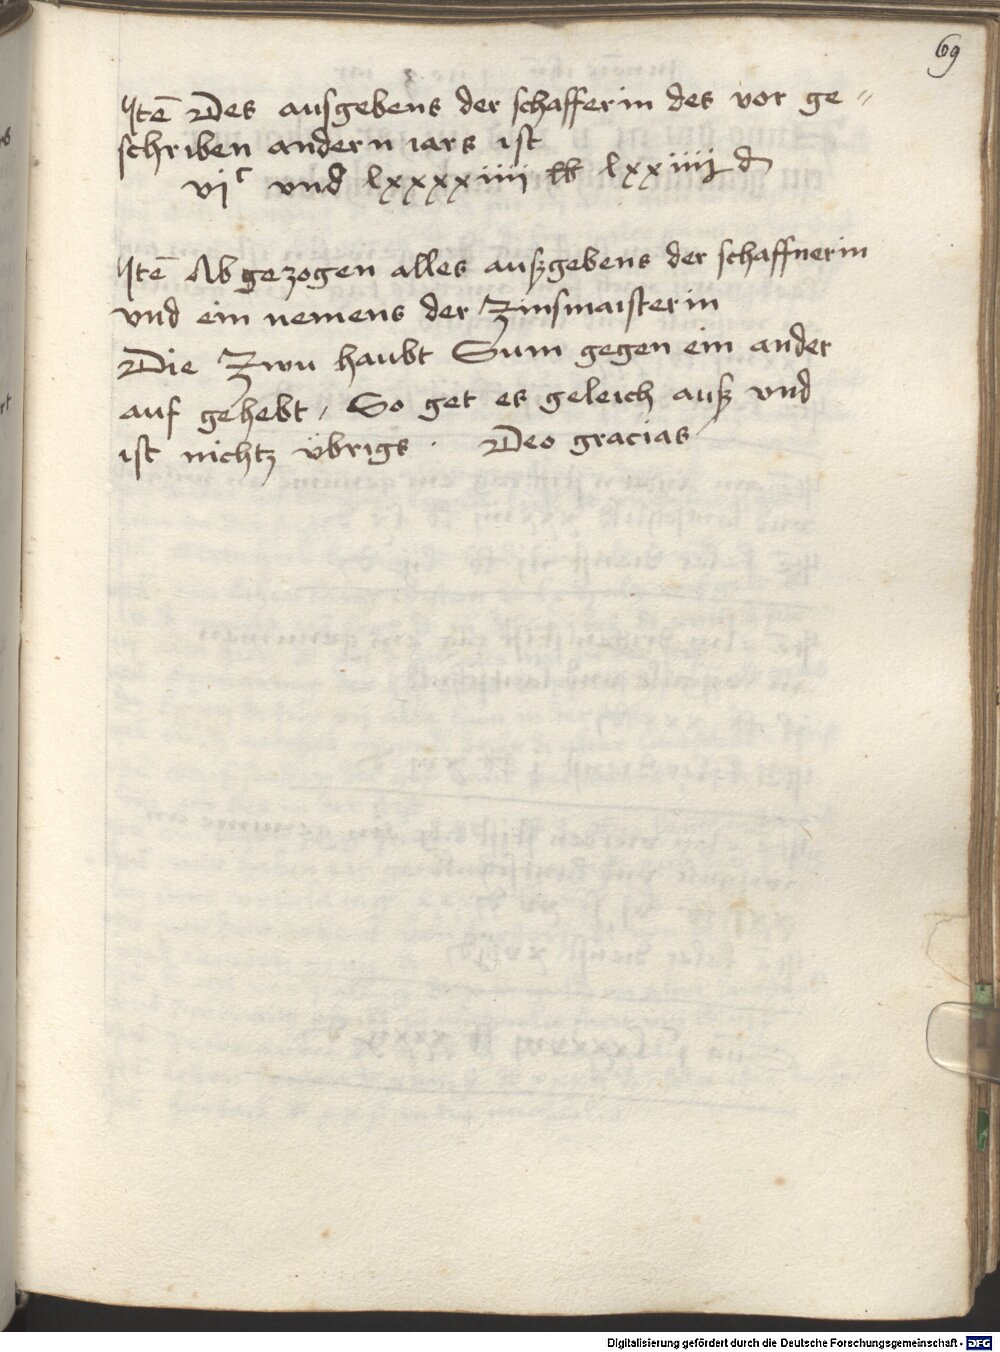 69
Itē Des ausgebens der schafferin des vor ge〃
schriben andern iars ist
vjᶜ vnd lxxxxiiii ℔ lxxiiii d
Itē Abgezogen alles außgebens der schaffnerin
vnd ein nemens der Zinsmaisterin
Die Zwu haubt Sum gegen ein ander
auf gehebt / So get es geleich auß vnd
ist nichtz übrigs · Deo gracias
Digitalisierung gefördert durch die Deutsche Forschungsgemeinschaft - DFG